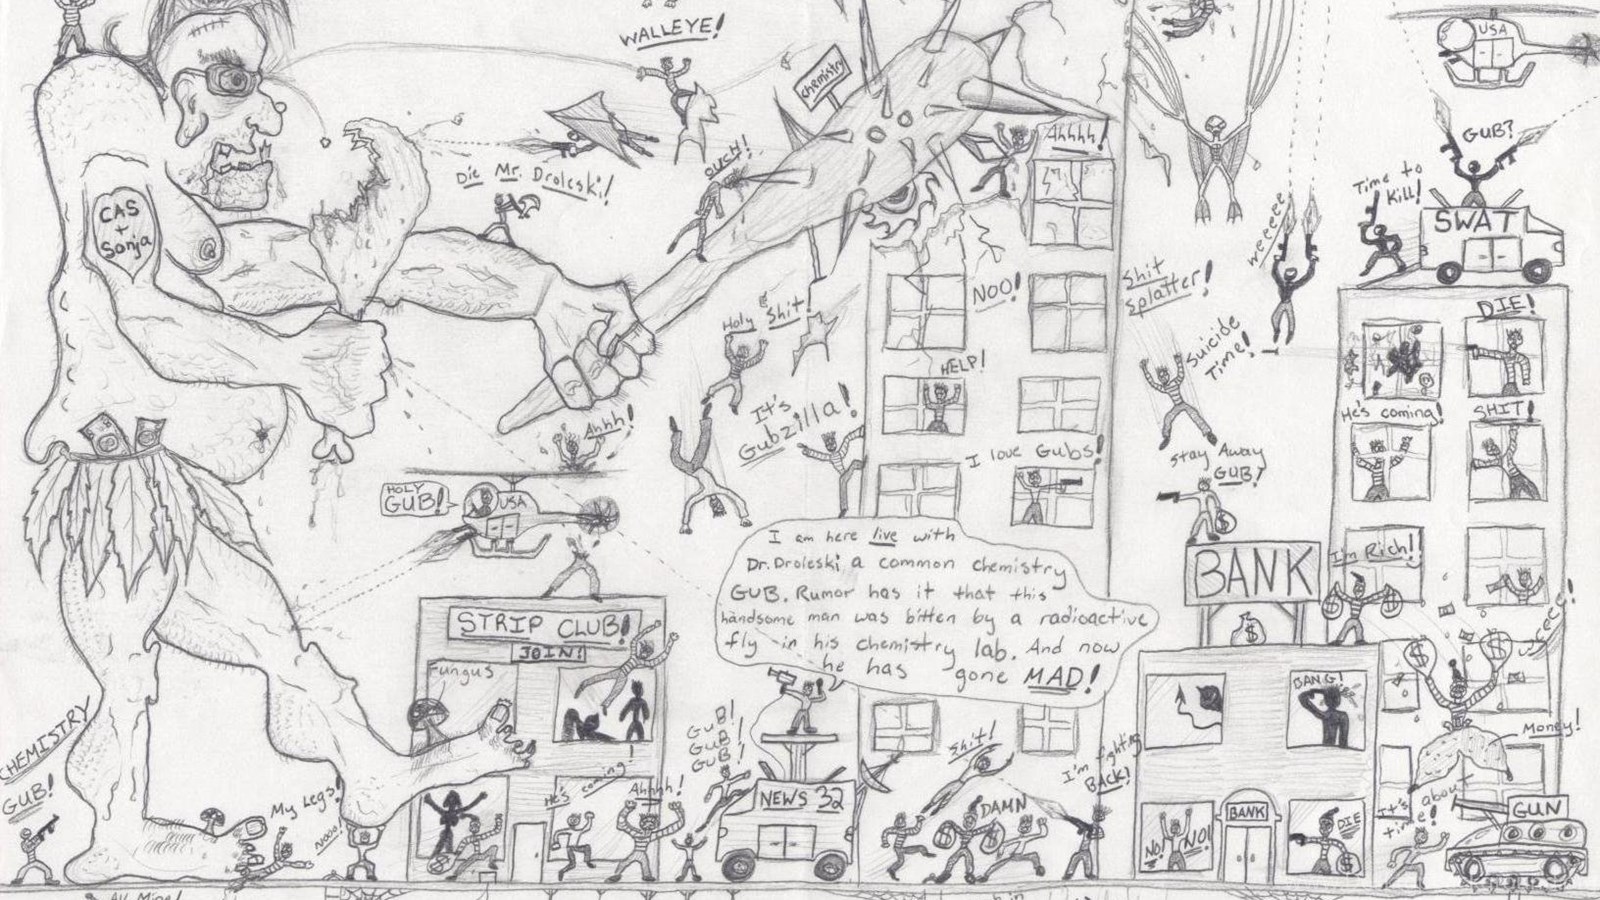 WALLEYE!
chemistry
USA
GUB?
Time to
Kill!
SWAT
OUCH!
Ahhhh!
Die Mr. Droleski!
CAS
+
Sonja
weeeeee
Shit
Splatter!
NOO!
DIE!
Holy Shit!
Suicide
Time!
HELP!
It's
Gubzilla!
He's coming!
SHIT!
Ahhh!
I love Gubs!
Stay Away
GUB?
HOLY
GUB!
USA
BANK
I'm Rich!!
I am here live with
Dr. Droleski a common chemistry
GUB. Rumor has it that this
handsome man was bitten by a radioactive
fly in his chemistry lab. And now
he has gone MAD!
STRIP CLUB!
JOIN!
Fungus
BANG!
CHEMISTRY
GUB!
GUB!
GUB!
GUB!
Shit!
I'm fighting
BACK!
Money!
My Legs!
Nooo!
He's coming!
Ahhhh!
NEWS 32
DAMN
NO!
NO!
BANK
DIE
It's about
time!
GUN